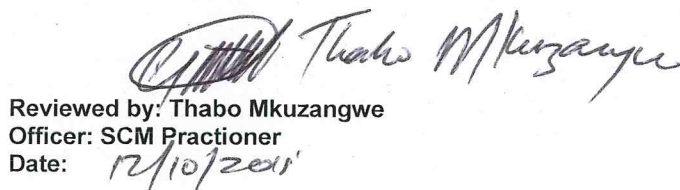 Thabo Mkuzangwe
Reviewed by: Thabo Mkuzangwe
Officer: SCM Practioner
Date: 12/10/2015